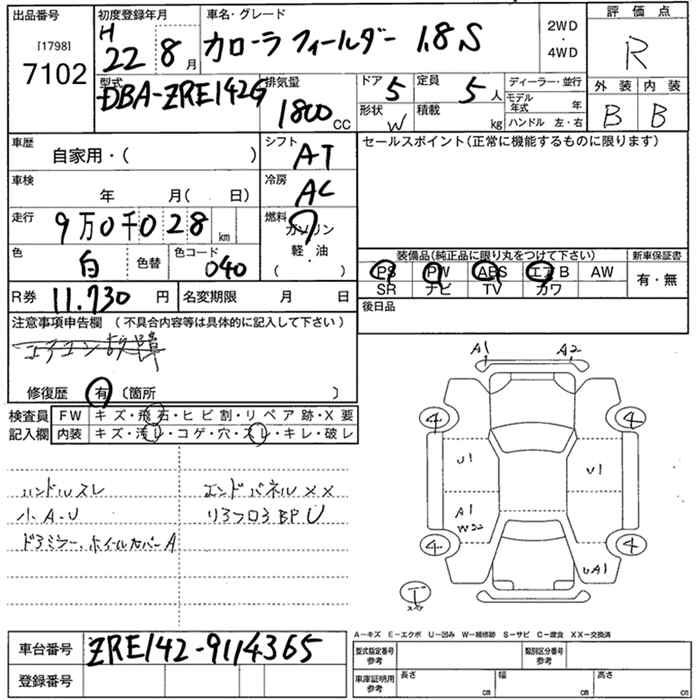 出品番号
[1798]
7102
初度登録年月
H 22 8 月
車名・グレード
カローラ フィールダー 1.8S
2WD
4WD
評価点
R
外装 内装
B B
型式
DBA-ZRE142G
排気量
1800 cc
ドア 5
定員 5 人
形状 W
積載 kg
ディーラー・並行
モデル年式 年
ハンドル 左・右
車歴
自家用・( )
シフト
AT
セールスポイント(正常に機能するものに限ります)
車検
年 月( 日)
冷房
AC
走行
9万0千028 km
燃料
ガソリン
軽・油
( )
色
白 色替
色コード
040
装備品(純正品に限り丸をつけて下さい)
PS PW ABS エアB AW
SR ナビ TV カワ
新車保証書
有・無
R券 11.730 円
名変期限 月 日
後日品
注意事項申告欄 (不具合内容等は具体的に記入して下さい)
エアコン故障
修復歴 有 〔箇所 〕
検査員記入欄
FW キズ・飛石・ヒビ割・リペア跡・X要
内装 キズ・汚レ・コゲ・穴・スレ・キレ・破レ
ハンドルスレ
小A-U
ドアミラー、ホイールカバーA
エンドパネルXX
リアフロアBPU
A1 A2
4 4
U1 U1
A1
W22
4 4
UA1
T
A-キズ E-エクボ U-凹み W-補修跡 S-サビ C-腐食 XX-交換済
車台番号 ZRE142-9114365
登録番号
型式指定番号
参考
類別区分番号
参考
車庫証明用
参考
長さ cm
幅 cm
高さ cm